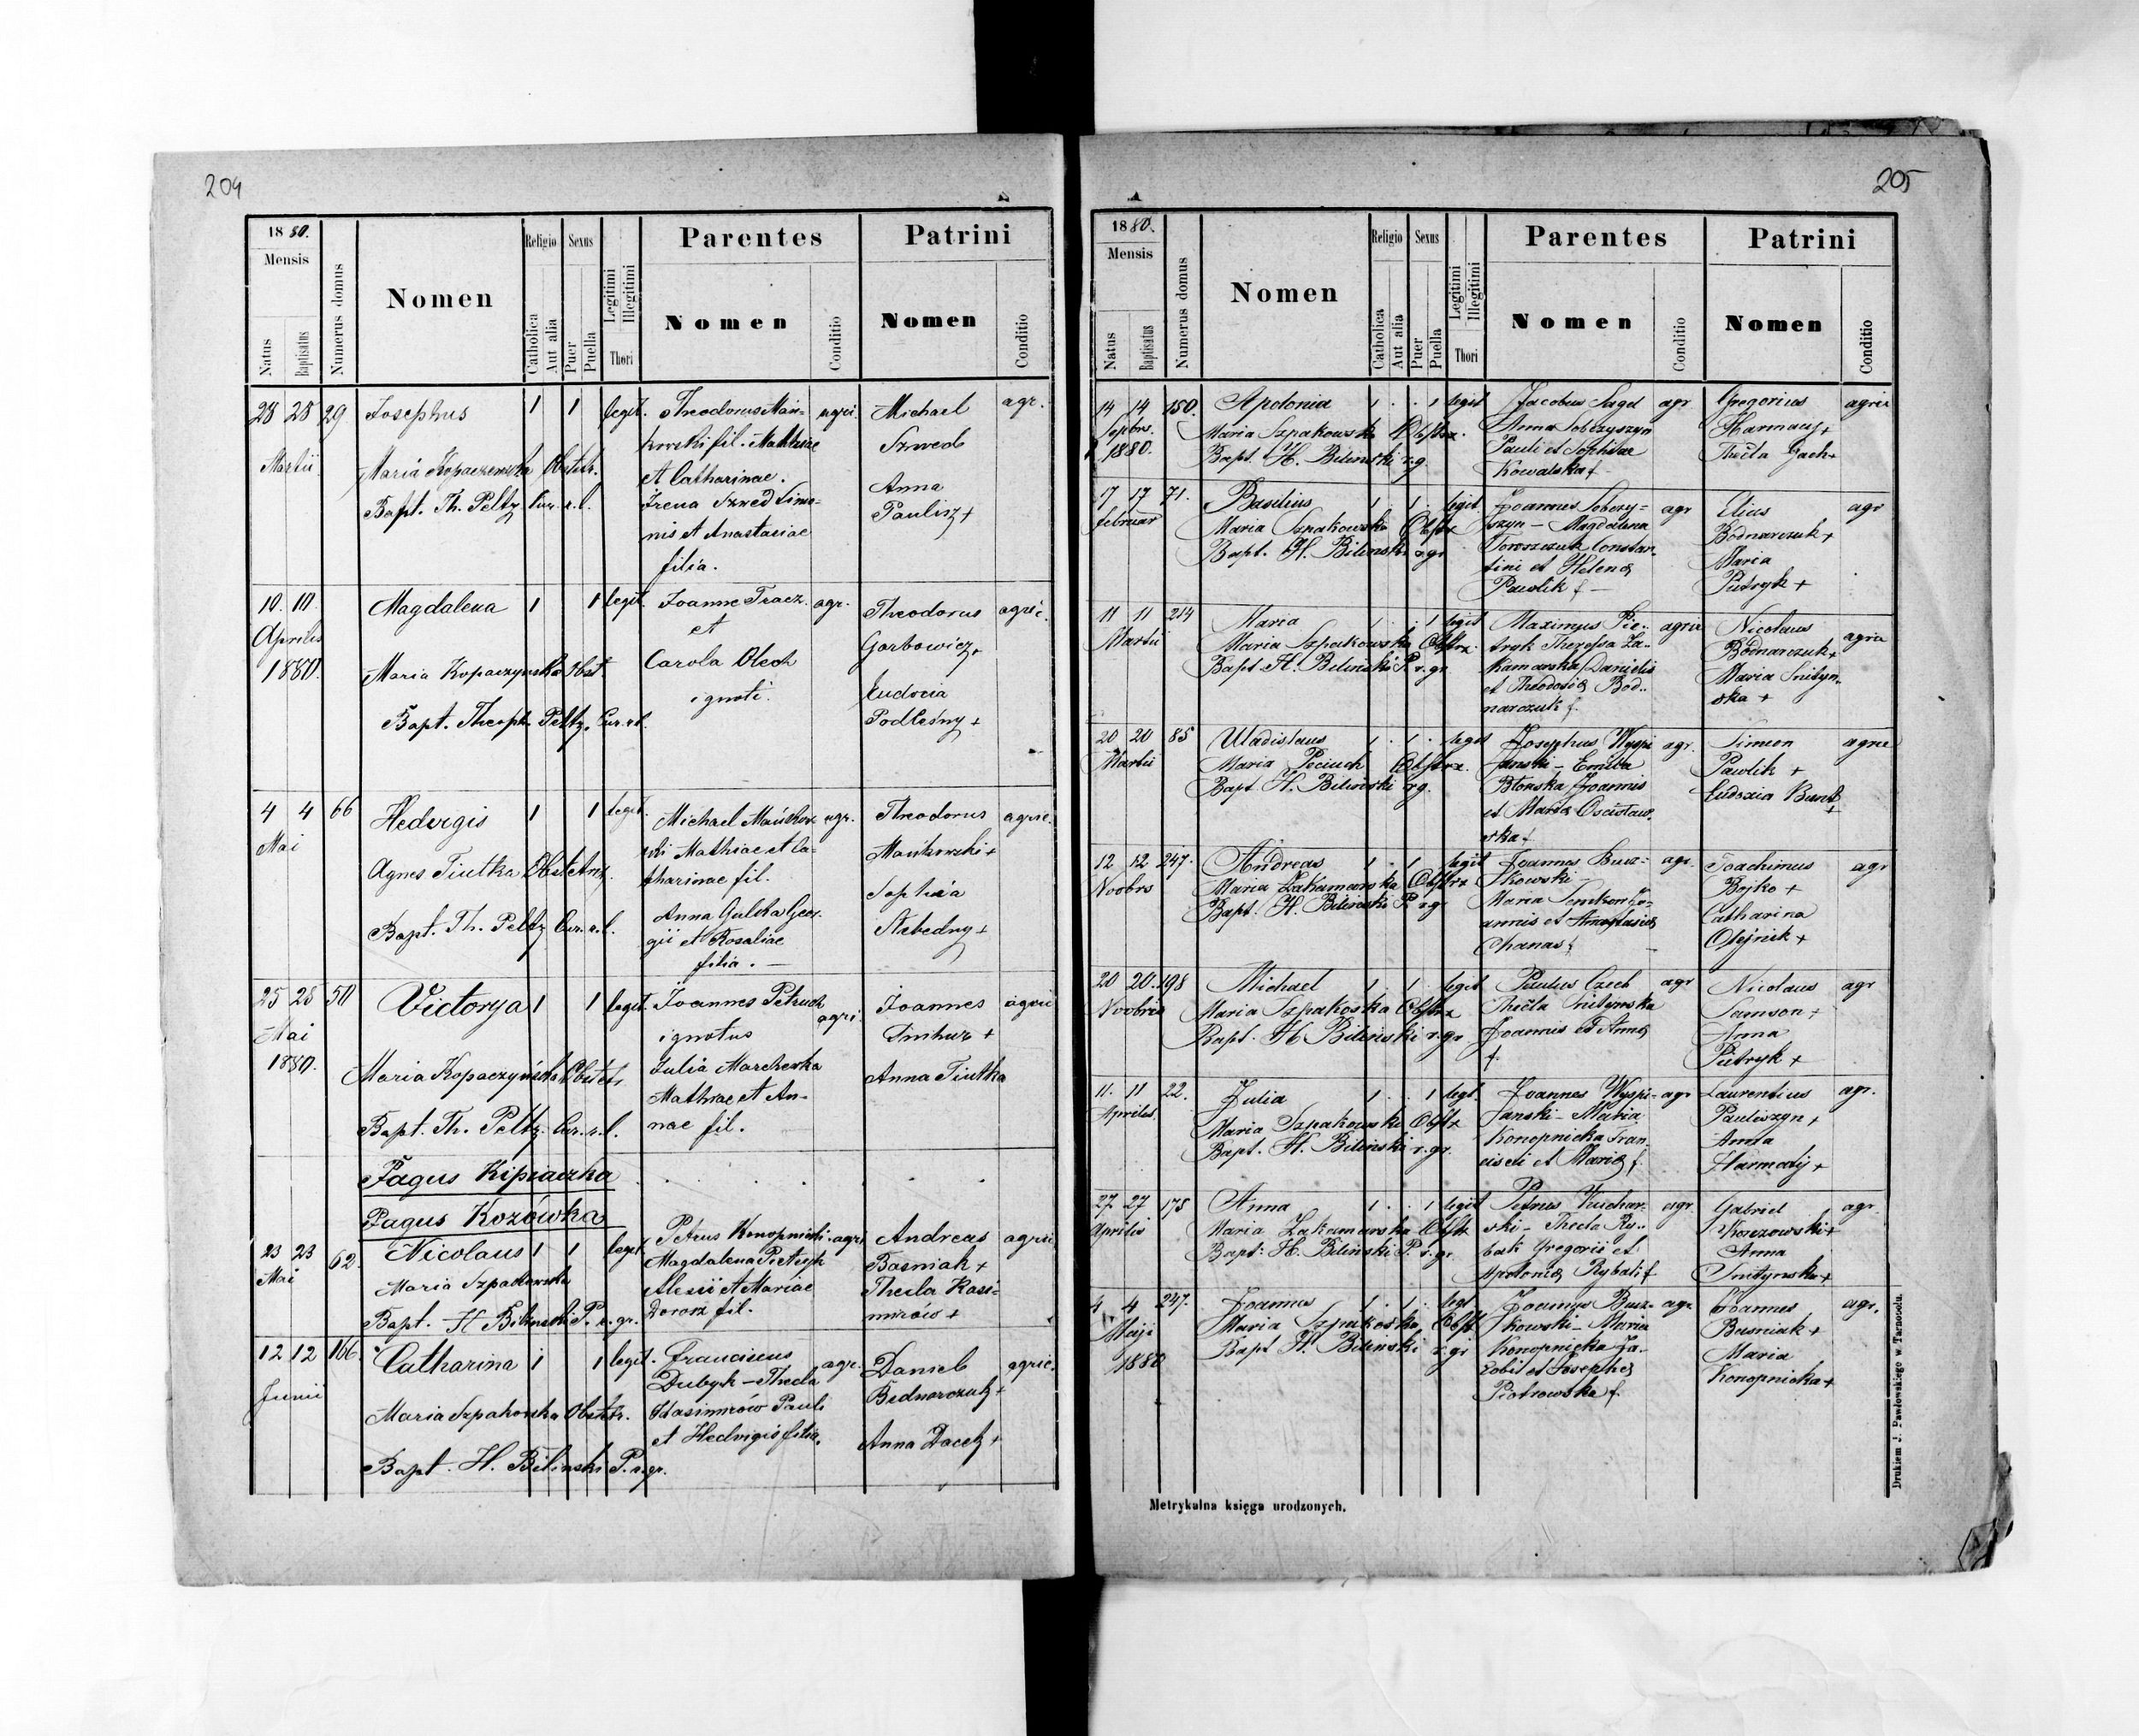 204
1880.
Mensis
Natus
Baptisatus
Numerus domus
Nomen
Religio
Catholica
Aut alia
Sexus
Puer
Puella
Legitimi
Illegitimi
Thori
Parentes
Nomen
Conditio
Patrini
Nomen
Conditio
28 28 29 Josephus 1 1 legit. Theodorus Mań- agri. Michael agr.
kowski fil. Mathiae Szwed
Martii Maria Kopaczewska Obstetr.
et Catharinae. Anna
Bapt. Th. Peltz Cur. r.l. Irena Szwed Simo- Paulisz +
nis et Anastasiae
filia.
10. 10. Magdalena 1 1 legit. Joanne Tracz agr. Theodorus agric.
Aprilis et Gorbowicz +
1880. Maria Kopaczyńska Obst. Carola Olech
ignoti. Eudocia
Bapt. Theoph. Peltz. Cur. r.l. Podleśny +
4 4 66 Hedvigis 1 1 legit. Michael Mańkow agr. Theodorus agric.
Mai ski Mathiae et Ca- Mańkowski +
Agnes Tiutka Obstetrix. tharinae fil.
Sophia
Bapt. Th. Peltz Cur. r.l. Anna Gulka Geor- Niebedny +
gii et Rosaliae
filia. —
25 25 50 Victorya 1 1 legit. Joannes Petruch agri. Joannes agric
Mai ignotus
1880. Maria Kopaczyńska Obstetr. Julia Marchewka Anna Tiutka
Mathiae et An-
Bapt. Th. Peltz. Cur. r.l. nae fil.
Pagus Kipiaczka
Pagus Kozówka
23 23 62 Nicolaus 1 1 legit. Petrus Konopnicki agri Andreas agric
Mai Maria Szpakowska Magdalena Pietryk Basniak +
Alexii et Mariae Thecla Kasi-
Bapt. H Bilinski P. r. gr. Dorosz fil. mirów +
12 12 166. Catharina 1 1 legit. Franciscus agr. Daniel agric.
Junii Dubyk — Thecla Bednarczuk +
Maria Szpakowska Obstetr. Kasimirów Pauli
et Hedvigis filia. Anna Dacek +
Bapt. H. Bilinski P. r. gr.
205
1880.
Mensis
Natus
Baptisatus
Numerus domus
Nomen
Religio
Catholica
Aut alia
Sexus
Puer
Puella
Legitimi
Illegitimi
Thori
Parentes
Nomen
Conditio
Patrini
Nomen
Conditio
14 14 150. Apolonia 1 . . 1 legit Jacobus agr Gregorius agric
Sepbrs. Maria Szpakowska Obsttrx. Anna Sobczyszyn Harmacy +
1880. Bapt. H. Bilinski r.g. Pauli et Sophiae Thecla Gach +
Kowalska f.
17 17 71. Basilius 1 . 1 . legit Joannes Sobczy- agr Elias agr
Februar Maria Szpakowska Obsttrx szyn — Magdalena Bodnarczuk +
Bapt. H. Bilinski r.gr Toroszczuk Constan- Maria
tini et Helenæ Pietryk +
Pawlik f —
11 11 214 Maria 1 . . 1 legit Maximus Pie- agric Nicolaus agric
Martii Maria Szpakowska Obsttrx. tryk Theresa Za- Bodnarczuk +
Bapt. H. Bilinski P. r. gr. kamarska Danielis Maria Snityn-
et Theodosiæ Bod- ska +
narczuk f.
20 20 85 Vladislaus 1 . 1 . legit Josephus Wyspi agr. Simeon agric
Martii Maria Pociuch Obsttrx. janski — Emilia Pawlik +
Bapt. H. Bilinski r.g. Błonska Joannis Eudoxia Bunt +
et Mariæ
ska f.
12 12 247. Andreas 1 . 1 . legit Joannes Busz- agr. Joachimus agr
Novbrs Maria Zakamarska Obsttrx kowski — Bojko +
Bapt. H. Bilinski P. r.gr. Maria Jo- Catharina
annis et Anastasiæ Olejnik +
Chanas f.
20 20. 198 Michael 1 . 1 . legit Paulus Czech agr Nicolaus agr
Novbris Maria Szpakoska Obsttrx Thecla Snitynska Samson +
Bapt. H. Bilinski r. gr Joannis et Annæ Anna
f. Pietryk +
11. 11 22. Julia 1 . . 1 legt. Joannes Wyspi- agr Laurentius agr.
Aprilis Maria Szpakowska Obsttrx janski — Maria Pauliszyn +
Bapt. H. Bilinski r. gr. Konopnicka Fran- Anna
cisci et Mariæ f. Harmatij +
27 27 175 Anna 1 . . 1 legit Petrus Kuchar- agr. Gabriel agr.
Aprilis Maria Zakamarska Obsttr ski — Thecla Ry- Koszowski +
Bapt. H. Biliński P. r. gr. bak Gregorii et Anna
Apoloniæ Rybak f Snitynska +
4 4 247. Joannes 1 . 1 . legt Joannes Busz- agr. Joannes agr.
Maji Maria Szpakoska Obstt. kowski — Maria Basniak +
1880 Bapt H Bilinski r. gr Konopnicka Ja- Maria
cobi et Josephæ Konopnicka +
Piotrowska f.
Metrykalna księga urodzonych.
Drukiem J. Pawłowskiego w Tarnopolu.